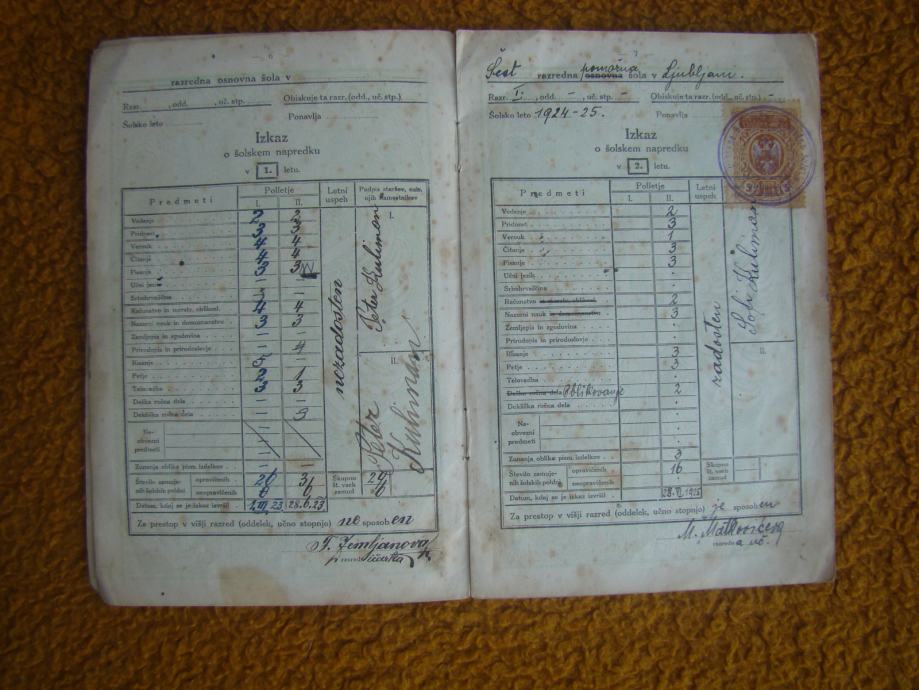 — 6 —
razredna osnovna šola v
Razr. , odd. , uč. stp. Obiskuje ta razr. (odd., uč. stp.)
Šolsko leto Ponavlja
Izkaz
o šolskem napredku
v 1. letu.
Predmeti Polletje Letni uspeh Podpis staršev, ozir. njih namestnikov
I. II. I.
Vedenje 2 2
Pridnost 3 3
Veruk 4 4
Čitanje 4 4
Pisanje 3 3
Učni jezik — —
Srbohrvaščina — —
Računstvo in merstv. oblikosl. 4 4
Nazorni nauk in domoznanstvo 3 3
Zemljepis in zgodovina — —
Prirodopis in prirodoslovje — 4
Risanje
Petje 2 1
Telovadba 3 3
Deška ročna dela — —
Dekliška ročna dela — 3
Neobvezni predmeti
Zunanja oblika pism. izdelkov — —
Število zamujenih šolskih poldni opravičenih
neopravičenih
Skupno št. vseh zamud
nezadosten
Peter Kuliman
II.
Peter Kuliman
Datum, kdaj se je izkaz izvršil 28.6.23
Za prestop v višji razred (oddelek, učno stopnjo) ne sposoben
F. Zemljanova
— 7 —
Šest razredna pomožna osnovna šola v Ljubljani.
Razr. I., odd. —, uč. stp. — Obiskuje ta razr. (odd., uč. stp.) —
Šolsko leto 1924-25. Ponavlja
Izkaz
o šolskem napredku
v 2. letu.
Predmeti Polletje Letni uspeh
I. II.
Vedenje 2
Pridnost 3
Veruk 1
Čitanje 3
Pisanje 3
Učni jezik
Srbohrvaščina
Računstvo in merstv. oblikosl. 2
Nazorni nauk in domoznanstvo 3
Zemljepis in zgodovina
Prirodopis in prirodoslovje
Risanje 3
Petje 3
Telovadba
Deška ročna dela Oblikovanje 2
Dekliška ročna dela
Neobvezni predmeti
Zunanja oblika pism. izdelkov 3
Število zamujenih šolskih poldni opravičenih 16
neopravičenih
Skupno št. vseh zamud
zadosten
Kuliman
II.
Datum, kdaj se je izkaz izvršil 28. VI. 1925
Za prestop v višji razred (oddelek, učno stopnjo) je sposoben